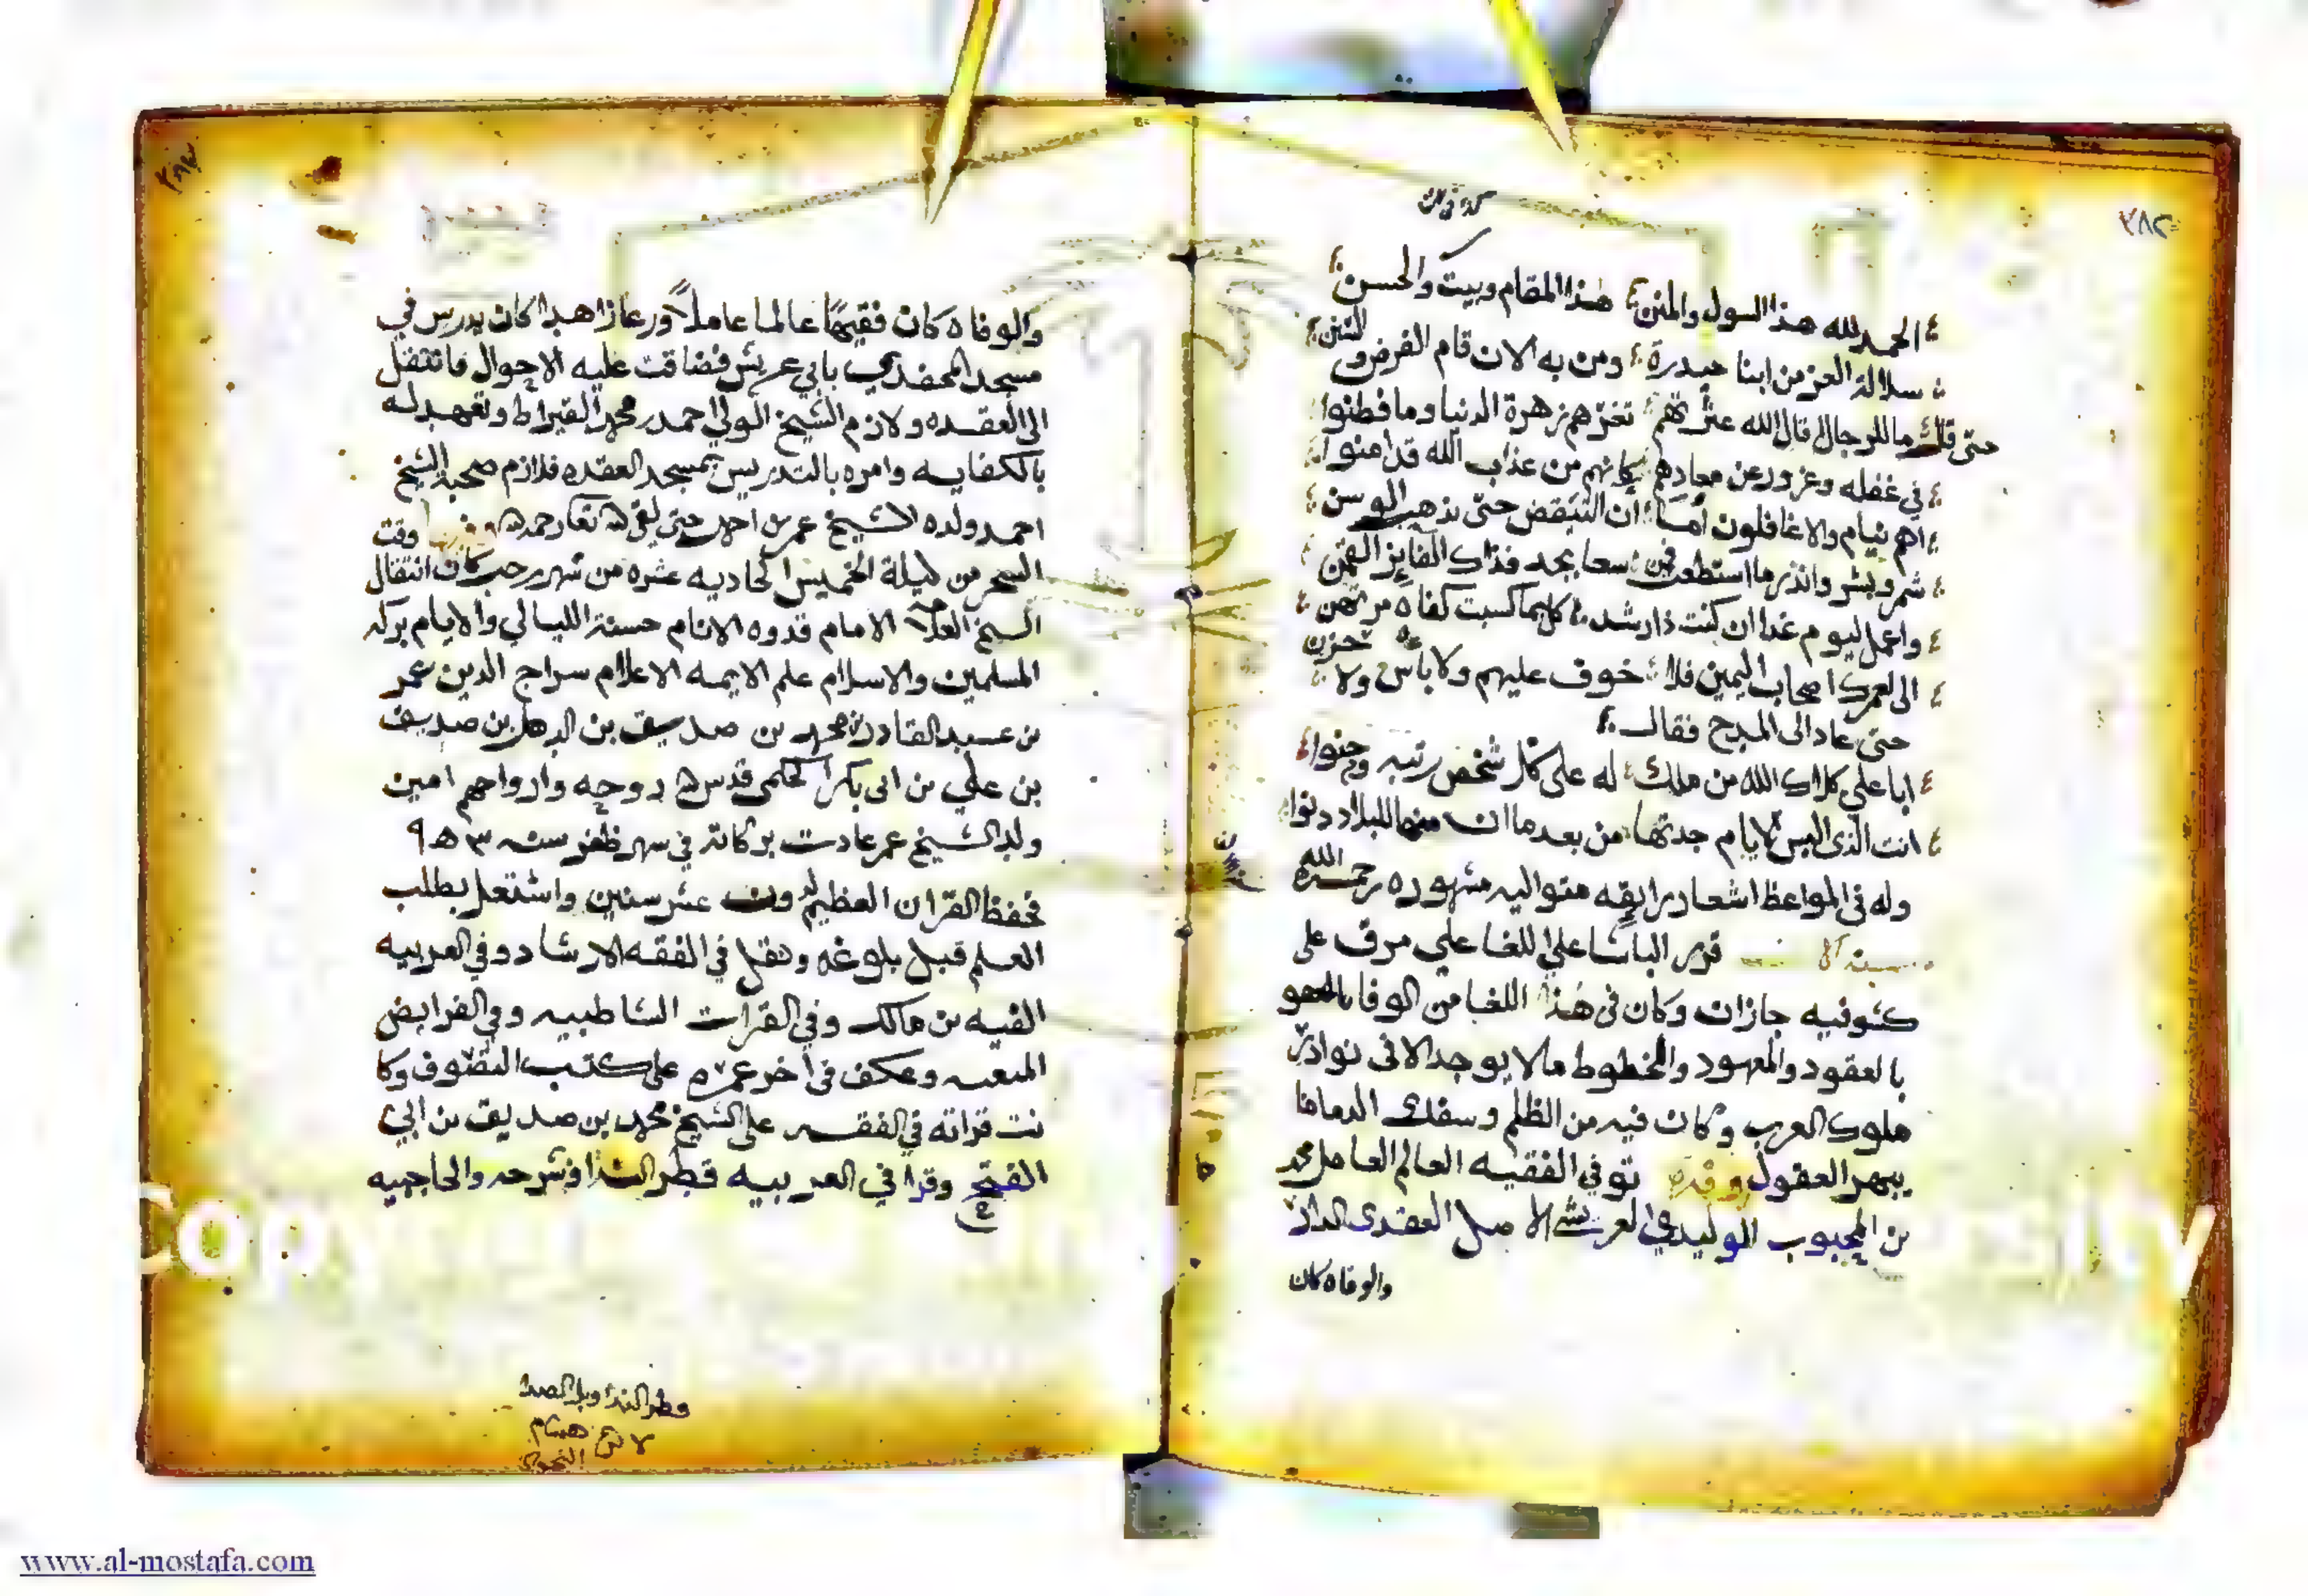 ٢٨٢
الحمد لله هذا السول والمنن هذا المقام وبيت والحسن
سلالة العز من ابنا حيدرة ومن به الان قام الفرض و السنن
حتى قال ما للرجال قال الله عثرتهم تغرهم زهرة الدنيا وما فطنوا
في غفله وغرور عن معادهم كانهم من عذاب الله قد امنوا
اهم نيام والا غافلون أما ان التيقض حتى يذهب الوسن
شمر وبشر وانذر ما استطعت فمن سعا بجد فذاك الفايز القمن
واعمل ليوم غدا ان كنت ذا رشد كل بما كسبت كفاه مرتهن
الى لعمرك اصحاب اليمين فلا خوف عليهم ولا باس ولا حزن
حتى عاد الى المدح فقال
ابا علي كلاك الله من ملك له على كل شخص رتبه
انت الذى البس الايام جدتها من بعد ما منها للبلاد
وله في المواعظ اشعار رايقه متواليه مشهوره رحمه الله
سنة قرر الباشا علي اللغا علي مرق على
كشوفيه جازان وكان في هذا اللغا من الوفا
بالعقود والعهود والخطوط ما لا يوجد الا في نوادر
ملوك العرب وكان فيه من الظلم وسفك الدما ما
يبهر العقول وفيها توفي الفقيه العالم العامل محمد
بن المحبوب الوليدي العريشي الاصل العقدي الدار
والوفاه كان
والوفاه كان فقيها عالما عاملا ورعا زاهدا كان يدرس في
مسجد المحفدي بابي عريش فضاقت عليه الاحوال فانتقل
الى العقده ولازم الشيخ الولي احمد بن محمد القيراط وتعهد له
بالكفايه وامره بالتدريس بمسجد العقده فلازم صحبة الشيخ
احمد وولده الشيخ عمر بن احمد حتى لقى الله تعا رحمه الله وفيها وقت
السحر من ليلة الخميس الحاديه عشره من شهر رجب كان انتقال
الشيخ العلامة الامام قدوه الانام حسنة الليالي والايام بركه
المسلمين والاسلام علم الايمه الاعلام سراج الدين عمر
بن عبد القادر بن محمد بن صديق بن الدهل بن صديق
بن علي بن ابى بكر الحكمى قدس الله روحه وارواحهم امين
ولد الشيخ عمر عادت بركاته في شهر ظفر سنه ٩٥٣
فحفظ القران العظيم لدون عشر سنين واشتعل بطلب
العلم قبل بلوغه ونقل في الفقه الارشاد وفي العربيه
الفيه بن مالك وفي القرات الشاطبيه وفي الفرايض
وعكف في آخر عمره على كتب التصوف وكا
نت قراته في الفقه على الشيخ محمد بن صديق بن ابي
الفتح وقرا في العربيه قطر الندا وشرحه والحاجبيه
قطر الندا وبل الصدا
لابن هشام
النحوي
www.al-mostafa.com